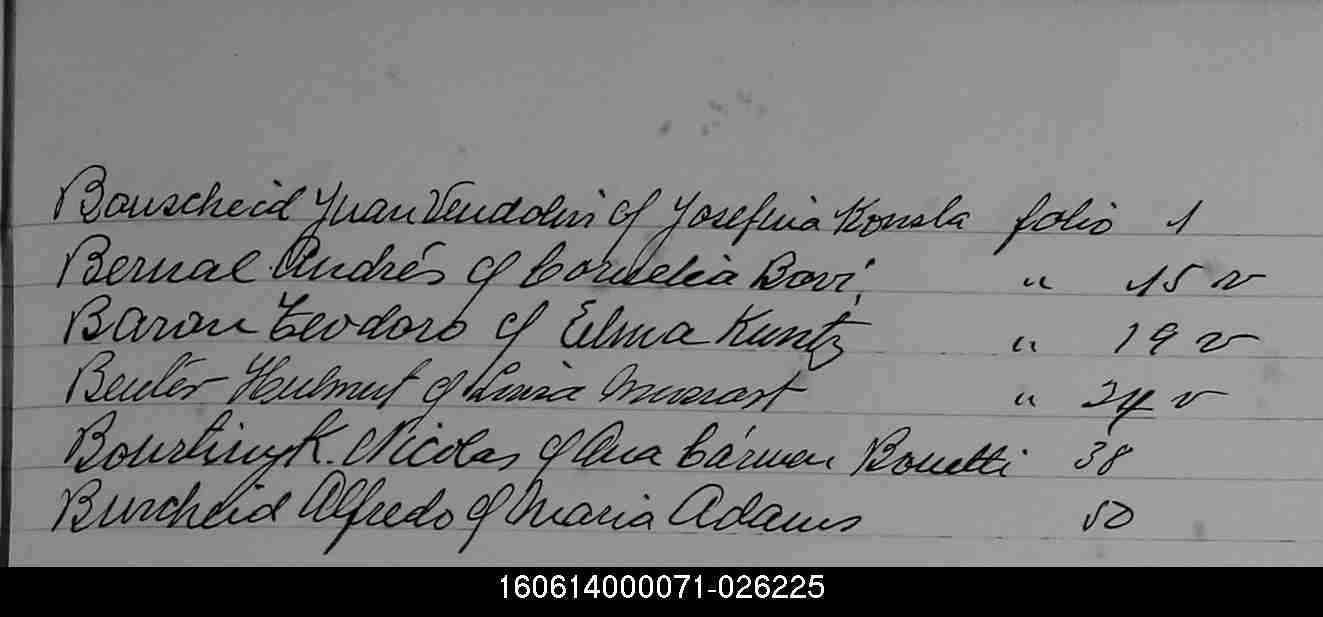 Bouscheid Juan Vendolin cf Josefina Konsla folio 1
Bernal Andrés cf Cornelia Bovi, " 15 v
Baron Teodoro cf Elma Kuntz " 19 v
Beuter Helmut cf Luisa " 24 v
Nicolas cf Ana Cármen Bonetti 38
Burcheid Alfredo cf Maria Adams 50
160614000071-026225